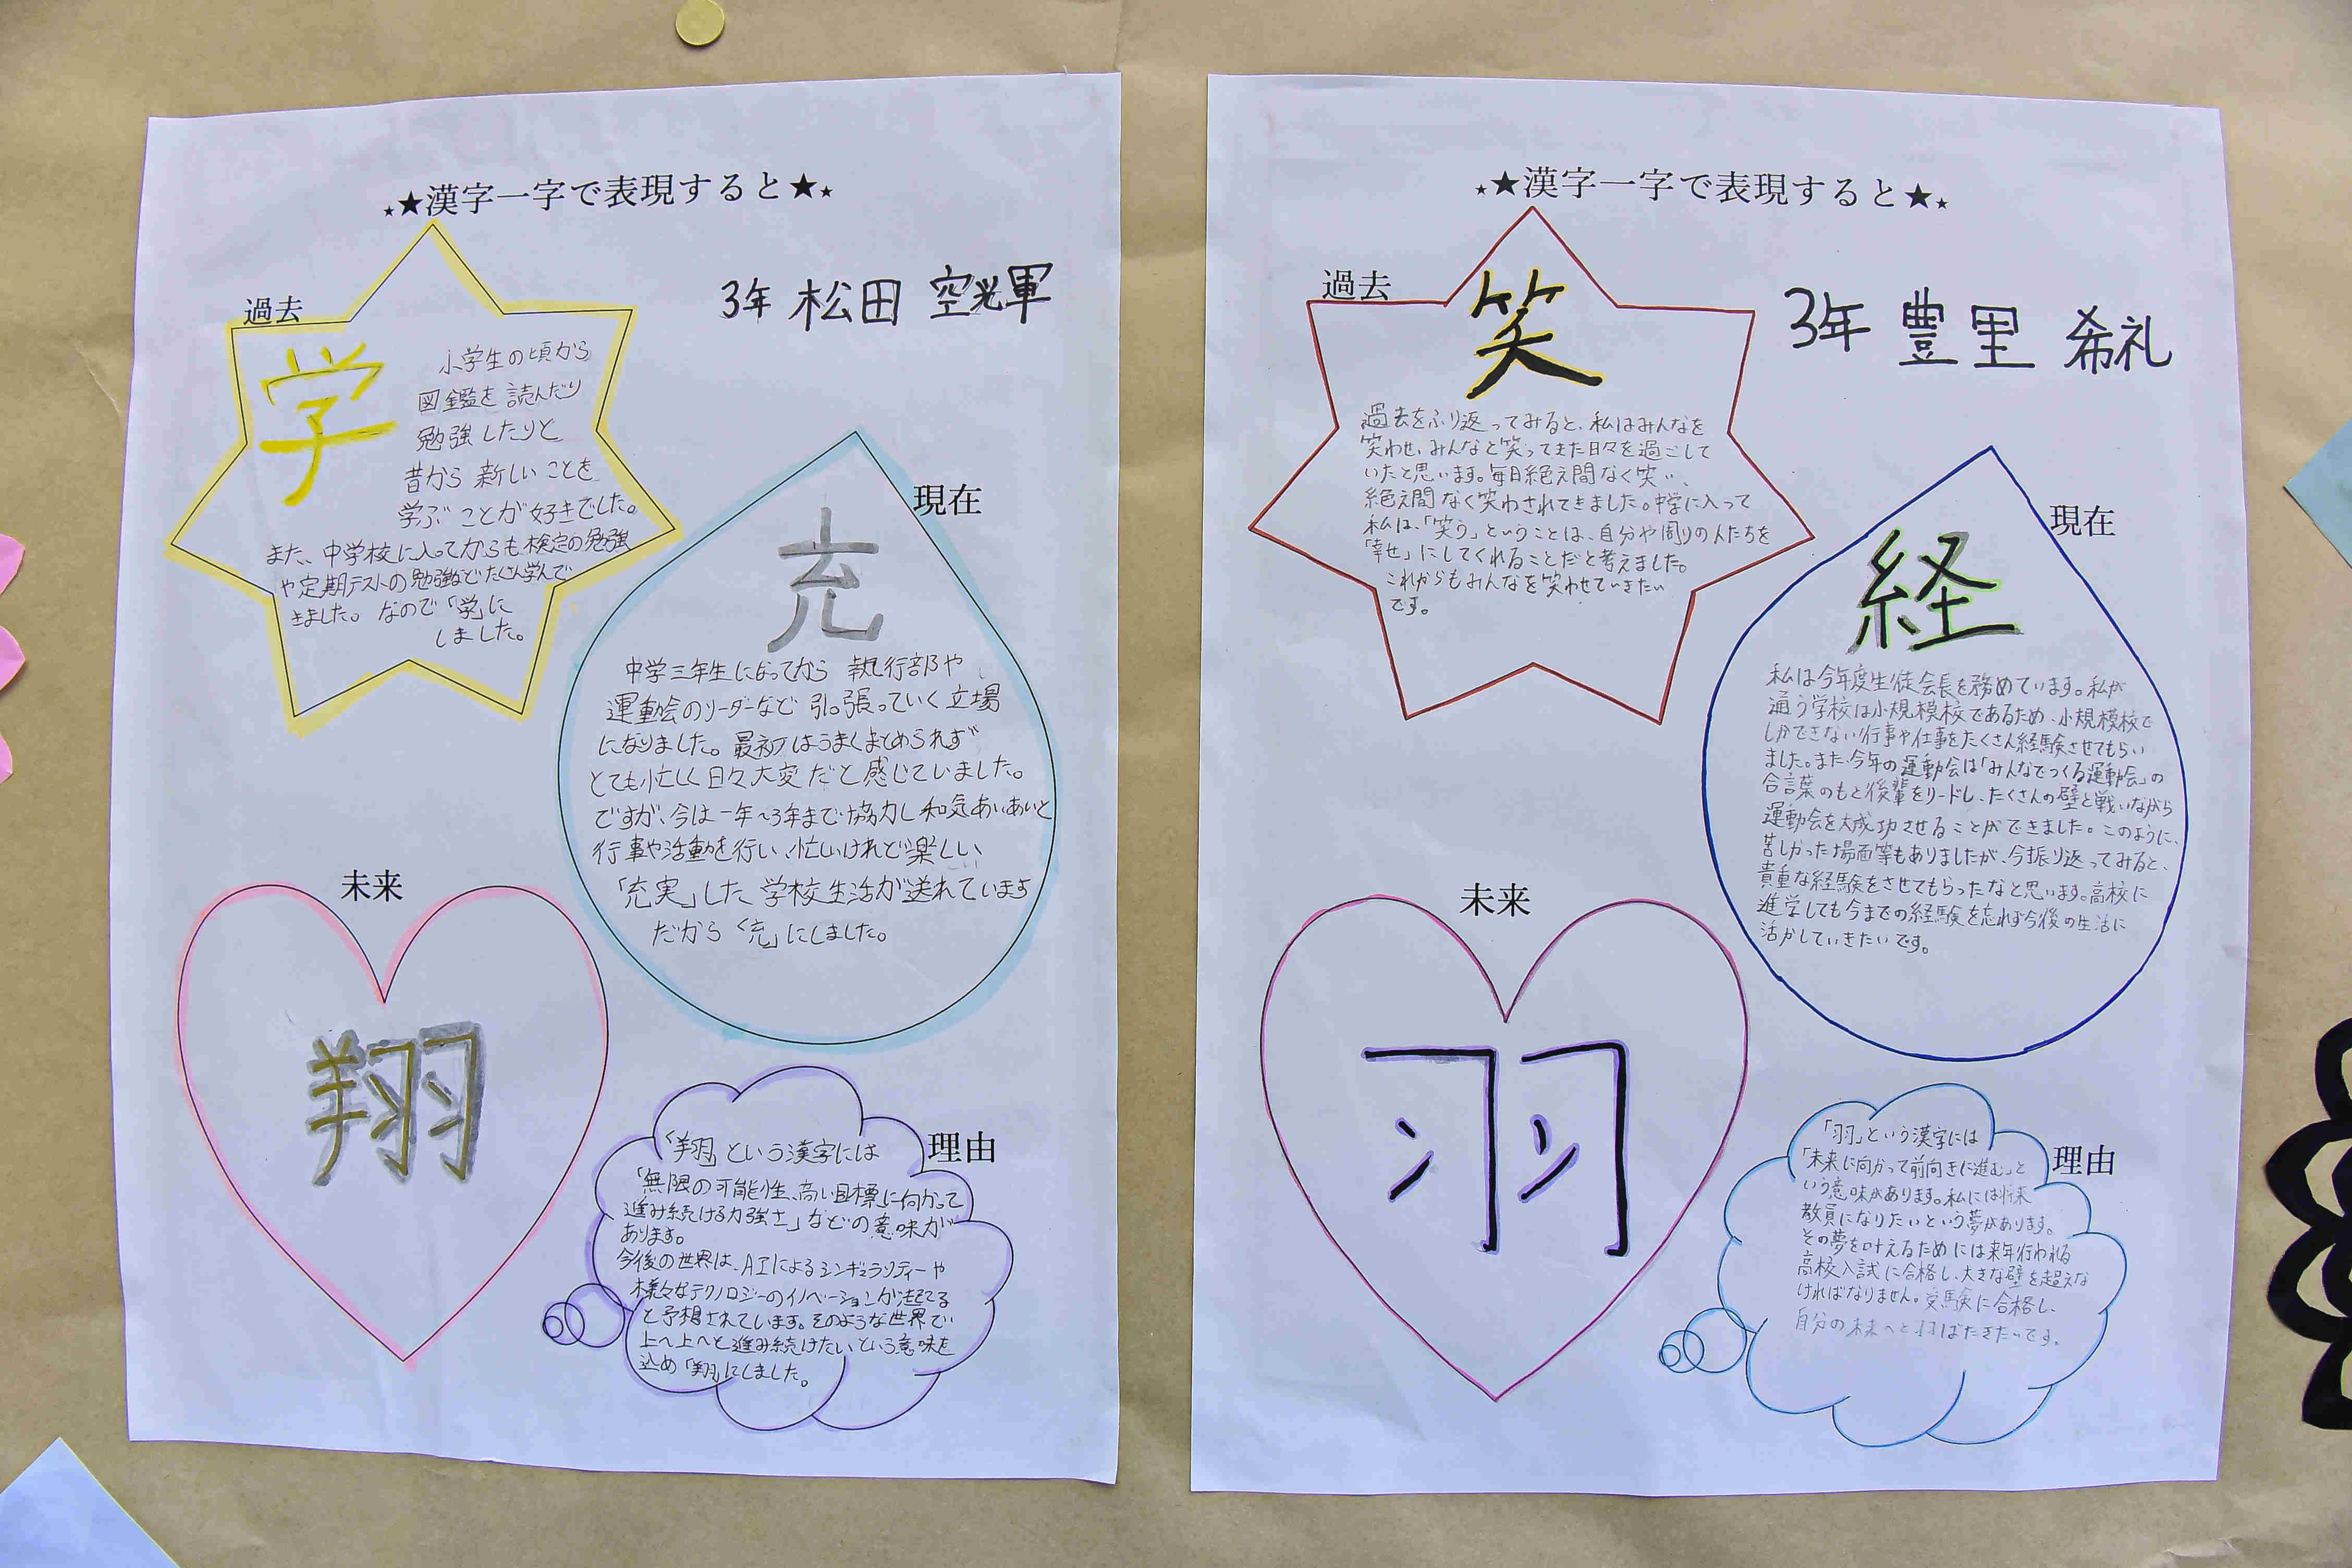 ★★漢字一字で表現すると★★
3年 松田 空輝
過去
学
小学生の頃から
図鑑を読んだり
勉強したりと
昔から新しいことを
学ぶことが好きでした。
また、中学校に入ってからも検定の勉強
や定期テストの勉強などたくさん学んで
きました。なので「学」に
しました。
現在
充
中学三年生になってから執行部や
運動会のリーダーなど引っ張っていく立場
になりました。最初はうまくまとめられず
とても忙しく日々大変だと感じていました。
ですが、今は一年〜3年まで協力し和気あいあいと
行事や活動を行い、忙しいけれど楽しい、
「充実」した学校生活が送れています
だから「充」にしました。
未来
翔
理由
「翔」という漢字には
「無限の可能性、高い目標に向かって
進み続ける力強さ」などの意味が
あります。
今後の世界は、AIによるシンギュラリティーや
様々なテクノロジーのイノベーションが起こる
と予想されています。そのような世界で
上へ上へと進み続けたいという意味を
込め「翔」にしました。
★★漢字一字で表現すると★★
3年 豊里 希礼
過去
笑
過去をふり返ってみると、私はみんなを
笑わせ、みんなと笑ってきた日々を過ごして
いたと思います。毎日絶え間なく笑い、
絶え間なく笑わされてきました。中学に入って
私は、「笑う」ということは、自分や周りの人たちを
「幸せ」にしてくれることだと考えました。
これからもみんなを笑わせていきたい
です。
現在
経
私は今年度生徒会長を務めています。私が
通う学校は小規模校であるため、小規模校で
しかできない行事や仕事をたくさん経験させてもらい
ました。また今年の運動会は「みんなでつくる運動会」の
合言葉のもと後輩をリードし、たくさんの壁と戦いながら
運動会を大成功させることができました。このように、
苦しかった場面等もありましたが、今振り返ってみると、
貴重な経験をさせてもらったなと思います。高校に
進学しても今までの経験を忘れず今後の生活に
活かしていきたいです。
未来
羽
理由
「羽」という漢字には
「未来に向かって前向きに進む」と
いう意味があります。私には将来
教員になりたいという夢があります。
その夢を叶えるためには来年行われる
高校入試に合格し、大きな壁を超えな
ければなりません。受験に合格し、
自分の未来へと羽ばたきたいです。